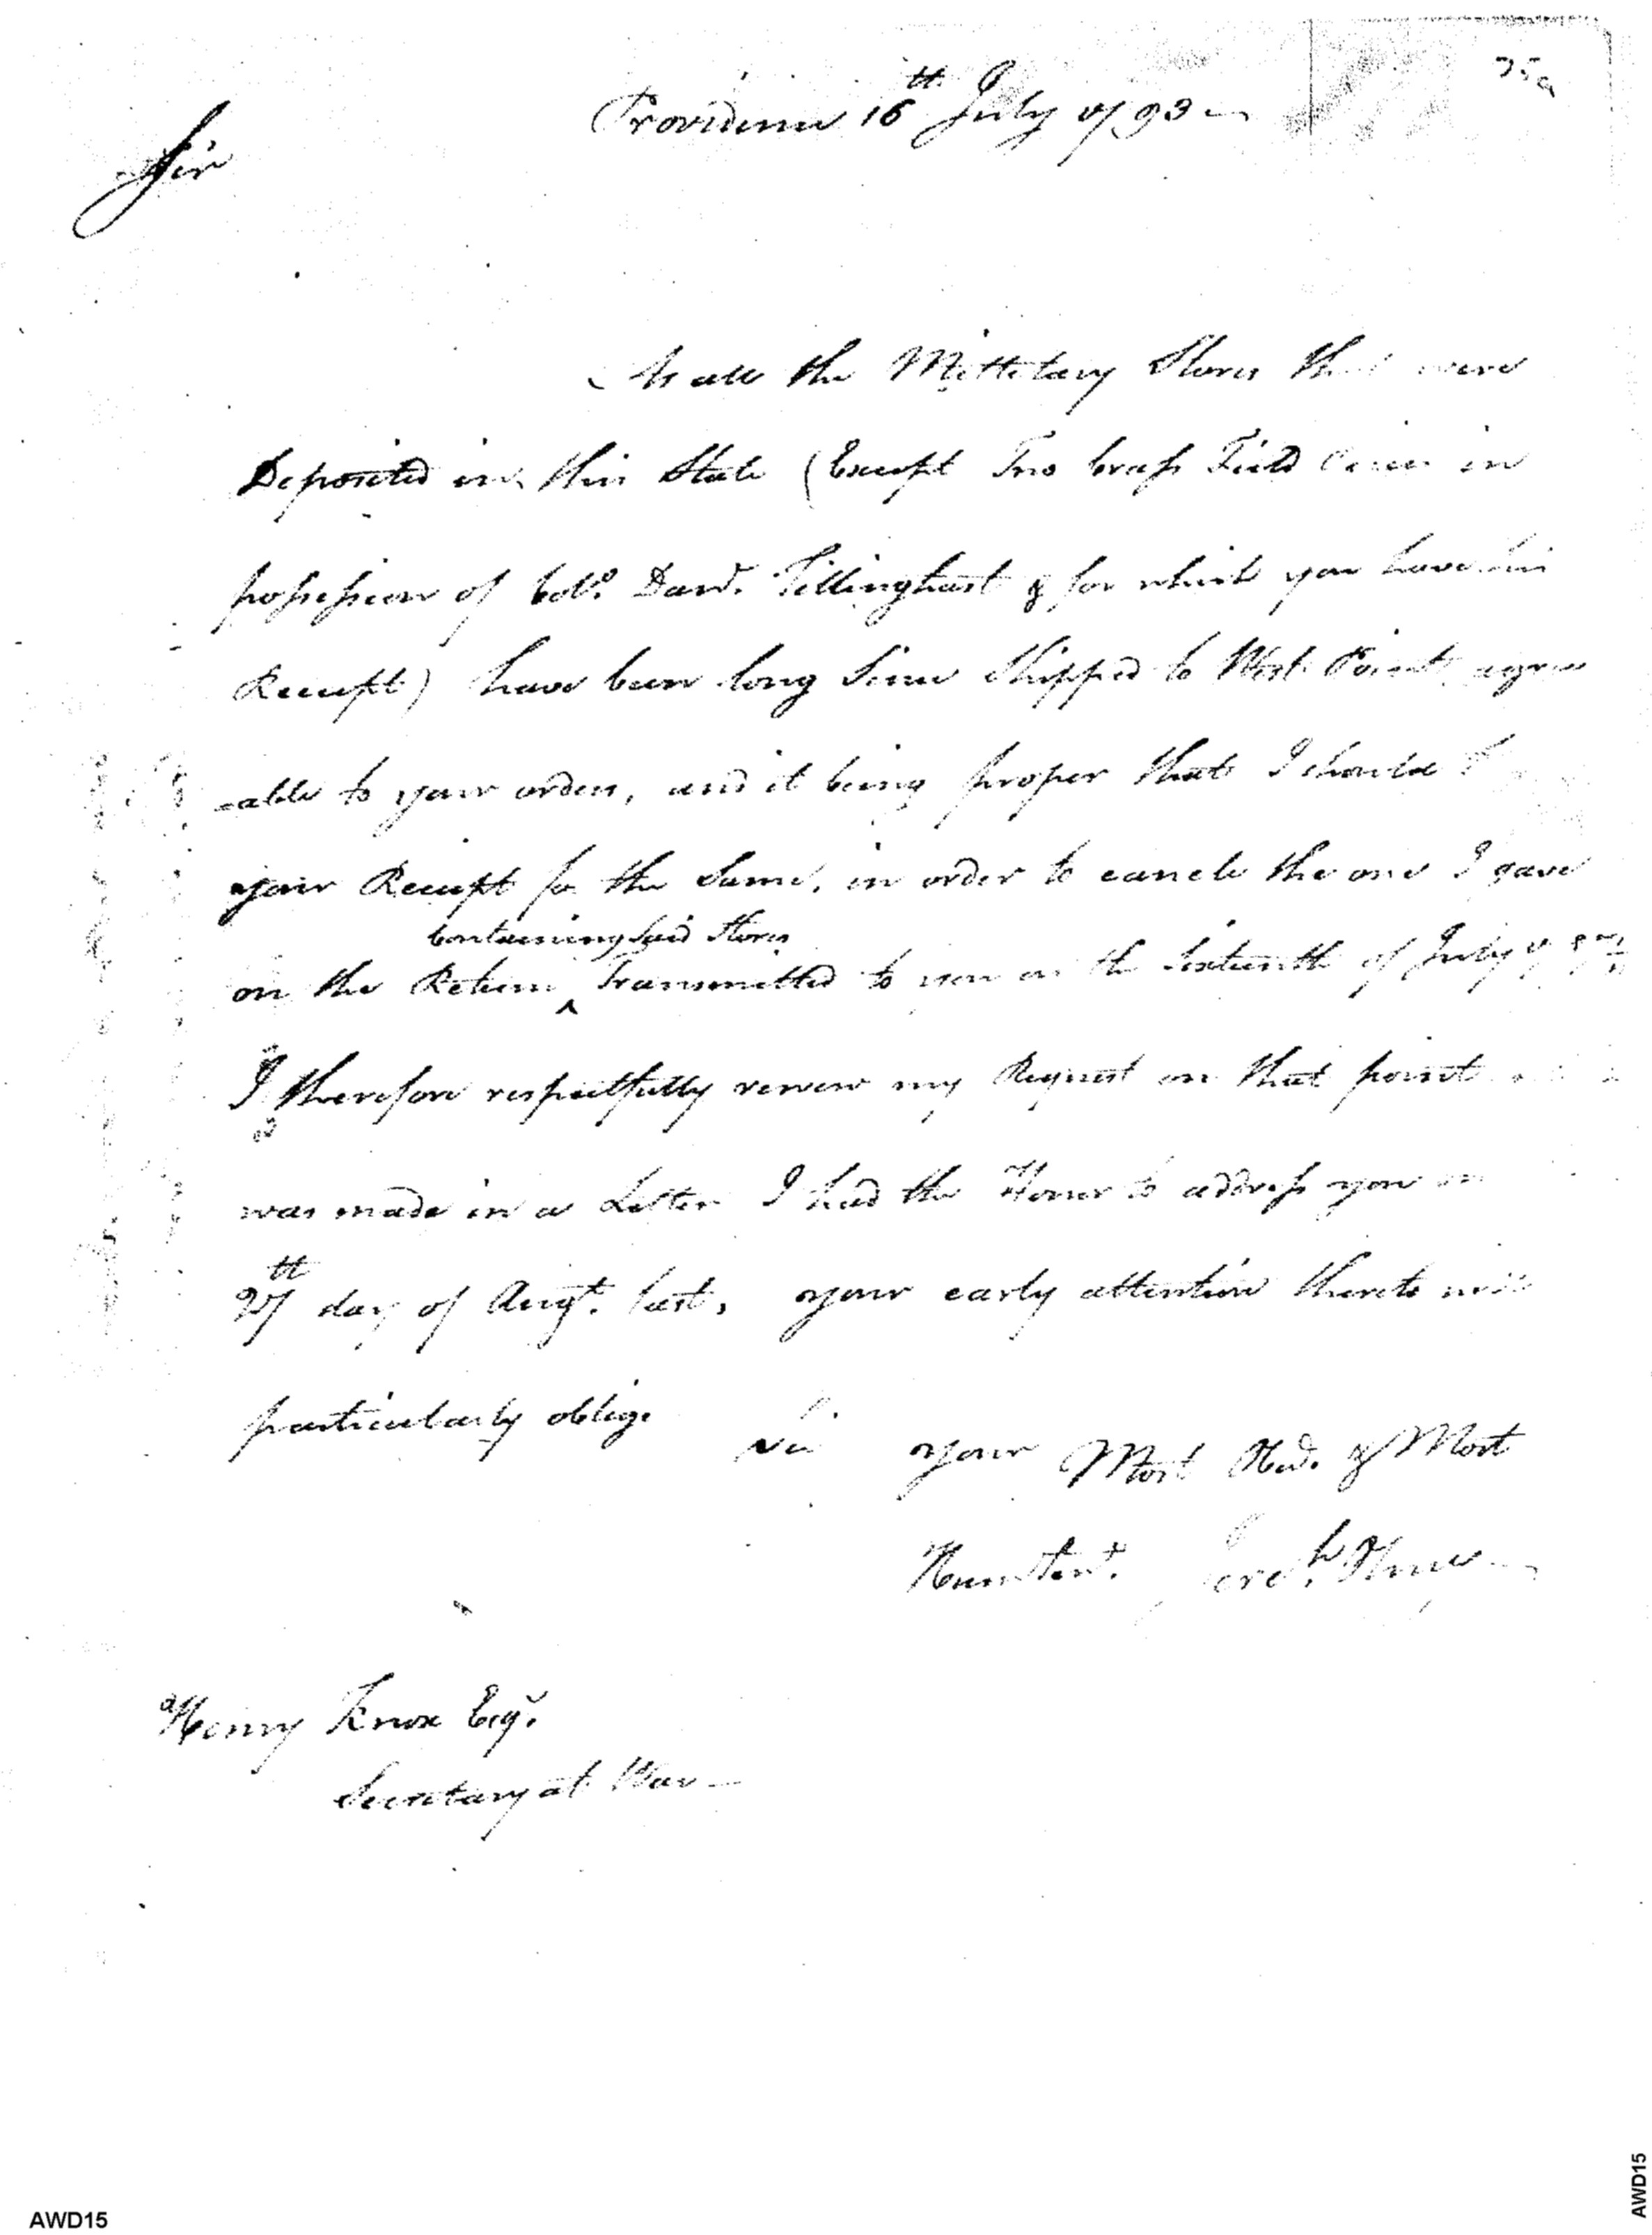 Providence 16th July 1793
Sir
As all the Millitary Stores that were
Deposited in this State (Except Two brass Field Pieces in
possession of Colo. Danl. Tillinghast & for which you have his
Receipt) have been long Since Shipped to West Point agree
-able to your orders, and it being proper that I should
your Receipt for the Same, in order to cancle the one I gave
Containing said Stores
on the Return ^ Transmitted to you on the Sixteenth of July
I therefore respectfully renew my Request on that point
was made in a Letter I had the Honor to address you on
27th day of Augt. last, your early attention thereto will
particularly oblige
Sir your Most Obd. & Most
Hum Servt. Jereh. Olney
Henry Knox Esqr.
Secretary at War
AWD15
AWD15